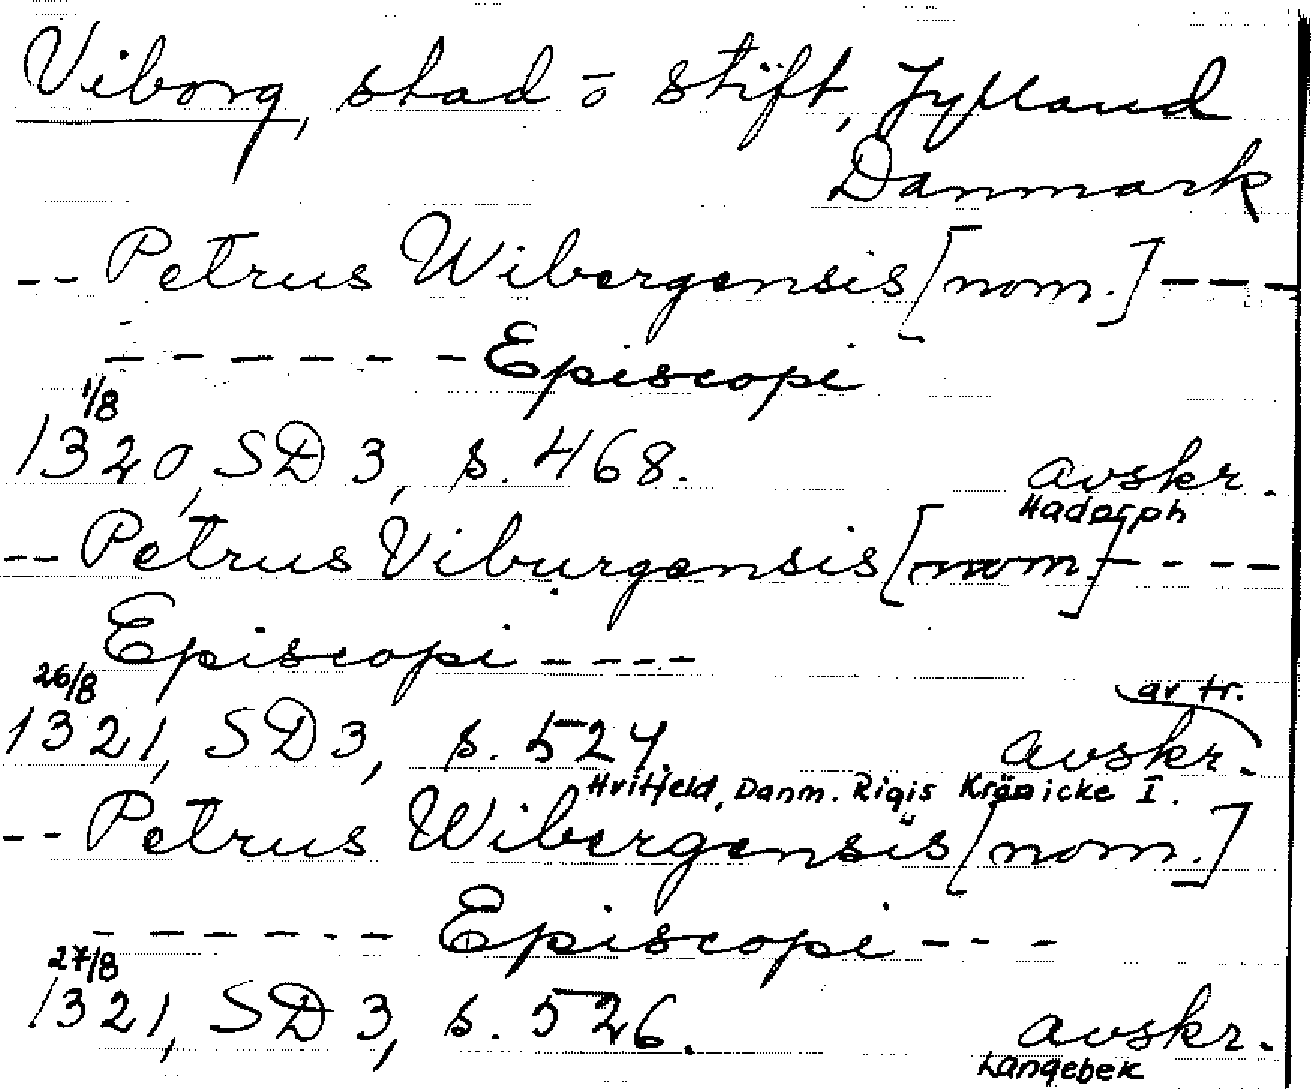 Viborg, stad o stift, Jylland
Danmark
-- Petrus Wibergensis [nom.] ----
------ Episcopi
1/8
1320, SD 3, s. 468. avskr.
Hadorph
-- Petrus Viburgensis [nom.] ----
Episcopi ----
26/8 av tr.
1321, SD 3, s. 524. avskr.
Hvitfeld, Danm. Rigis Krönicke I.
-- Petrus Wibergensis [nom.]
------ Episcopi ---
27/8
1321, SD 3, s. 526. avskr.
Langebek